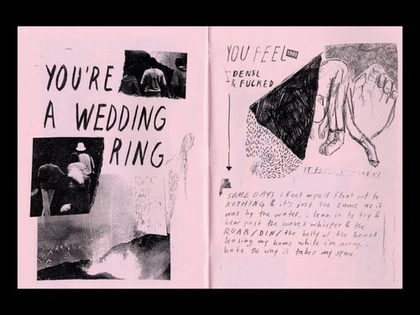 YOU'RE
A WEDDING
RING
YOU FEEL
DENSE
& FUCKED
IT FEELS
SOME DAYS i feel myself float out to
NOTHING & it's just the same as it
was by the water, i lean in to try &
hear past the waves whisper & the
ROAR/DIN/ the belly of the beast
leasing my home while i'm away. i
hate the way it takes my space.